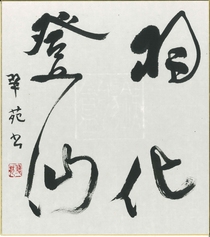 羽化
登仙
翠苑书